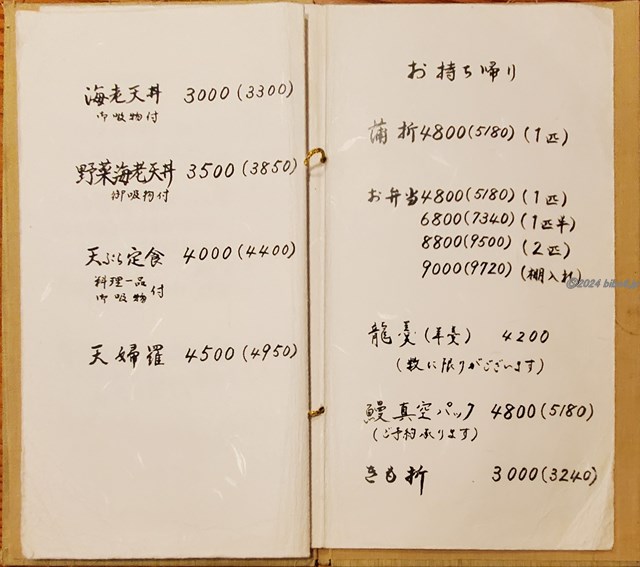 海老天丼 3000(3300)
御吸物付
野菜海老天丼 3500(3850)
御吸物付
天ぷら定食 4000(4400)
料理一品
御吸物 付
天婦羅 4500(4950)
お持ち帰り
蒲折 4800(5180) (1匹)
お弁当 4800(5180) (1匹)
6800(7340) (1匹半)
8800(9500) (2匹)
9000(9720) (棚入れ)
4200
(数に限りがございます)
鰻真空パック 4800(5180)
(ご予約承ります)
きも折 3000(3240)
©2024